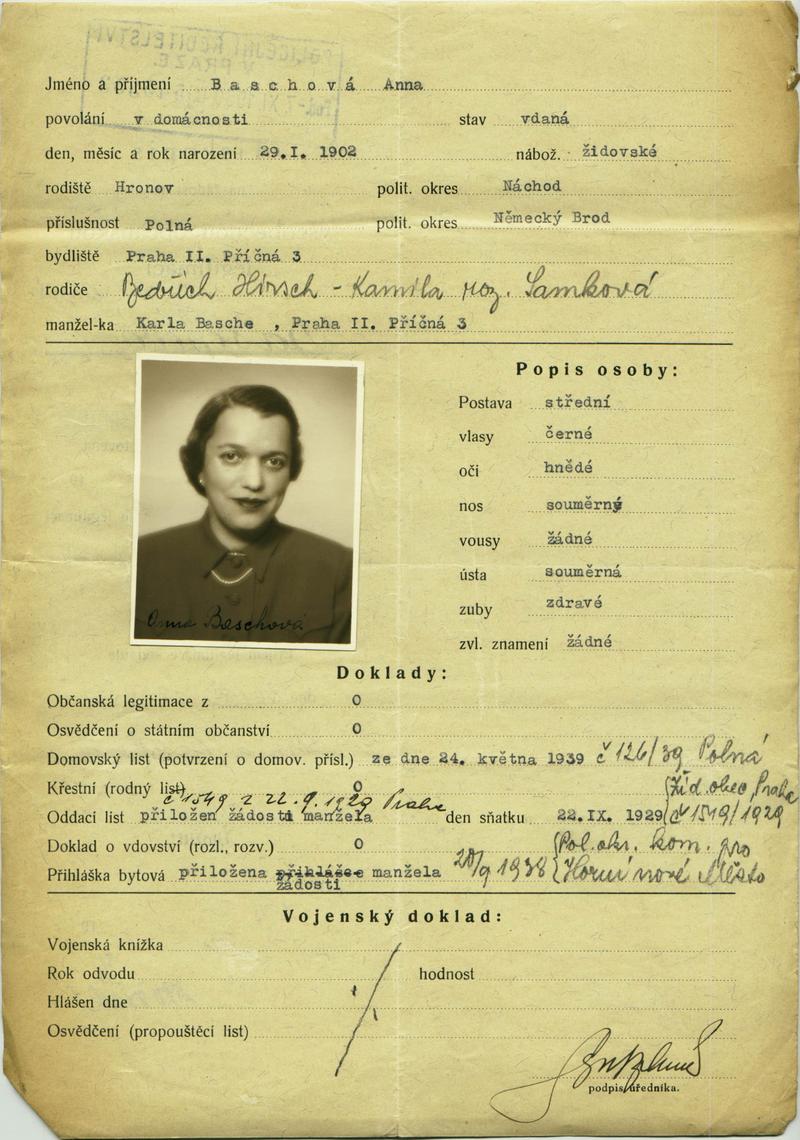 POLICEJNÍ ŘEDITELSTVÍ
V PRAZE.
Jméno a příjmení Baschová Anna
povolání v domácnosti stav vdaná
den, měsíc a rok narození 29.I. 1902 nábož. židovské
rodiště Hronov polit. okres Náchod
příslušnost Polná polit. okres Německý Brod
bydliště Praha II. Příčná 3
rodiče Bedřich Hirsch - Kamila roz. Samková
manžel-ka Karla Basche , Praha II. Příčná 3
Popis osoby:
Postava střední
vlasy černé
oči hnědé
nos souměrný
vousy žádné
ústa souměrná
zuby zdravé
zvl. znamení žádné
Anna Baschova
Doklady:
Občanská legitimace z 0
Osvědčení o státním občanství 0
Domovský list (potvrzení o domov. přísl.) ze dne 24. května 1939 č 126/39 Polná
Křestní (rodný list) 0 (Žid. obec, Praha
č 1549 z 22. 9. 1929 Praha
Oddací list přiložen žádosti manžela den sňatku 22.IX. 1929 (č 1549/1929
Doklad o vdovství (rozl., rozv.) 0 (Pol. okr. kom. pro
Přihláška bytová přiložena přihlášce manžela 20/9 1938 (Horní nové Město
žádosti
Vojenský doklad:
Vojenská knížka
Rok odvodu hodnost
Hlášen dne
Osvědčení (propouštěcí list)
podpis úředníka.